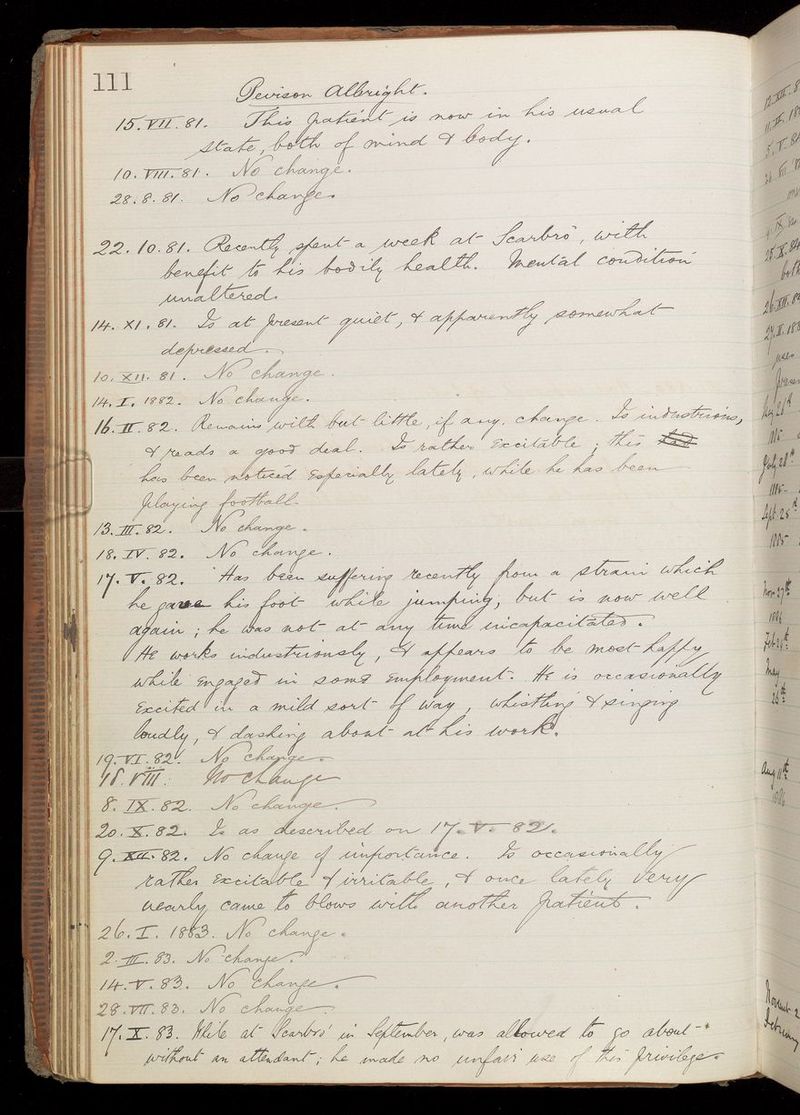 111
Pevison Albright.
15.VII.81. This patient is now in his usual
state, both of mind & body.
10.VIII.81. No change.
28.8.81. No change.
22.10.81. Recently spent a week at Scarbro', with
benefit to his bodily health. Mental condition
unaltered.
14.XI.81. Is at present quiet, & apparently somewhat
depressed.
10.XII.81. No change.
14.I.1882. No change.
16.II.82. Remains with but little, if any, change. Is industrious,
& reads a good deal. Is rather excitable; this
has been noticed especially lately, while he has been
playing football.
13.III.82. No change.
18.IV.82. No change.
17.V.82. Has been suffering recently from a strain which
he gave his foot while jumping, but is now well
again; he was not at any time incapacitated.
He works industriously, & appears to be most happy
while engaged in some employment. He is occasionally
excited in a mild sort of way, whistling & singing
loudly, & dashing about at his work.
19.VI.82. No change.
18.VIII. No change
8.IX.82. No change.
20.X.82. Is as described on 17.V.82.
9.XII.82. No change of importance. Is occasionally
rather excitable & irritable, & once lately very
nearly came to blows with another patient.
26.I.1883. No change.
2.III.83. No change.
14.V.83. No change.
28.VII.83. No change.
17.X.83. While at Scarbro' in September, was allowed to go about
without an attendant; he made no unfair use of this privilege.